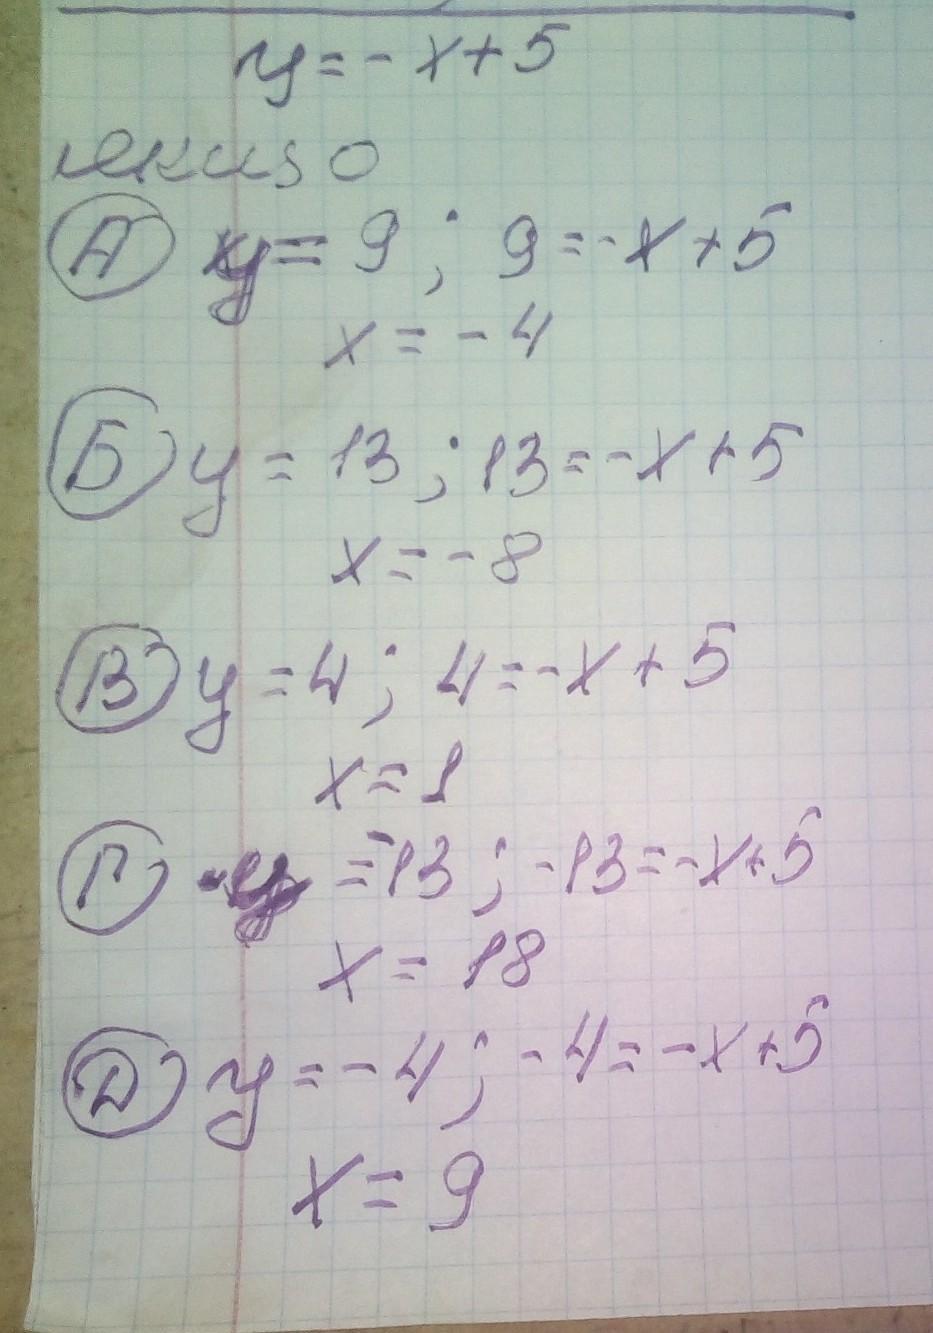 y = -x + 5
якщо
А y = 9 ; 9 = -x + 5
x = -4
Б y = 13 ; 13 = -x + 5
x = -8
В y = 4 ; 4 = -x + 5
x = 1
Г y = -13 ; -13 = -x + 5
x = 18
Д y = -4 ; -4 = -x + 5
x = 9